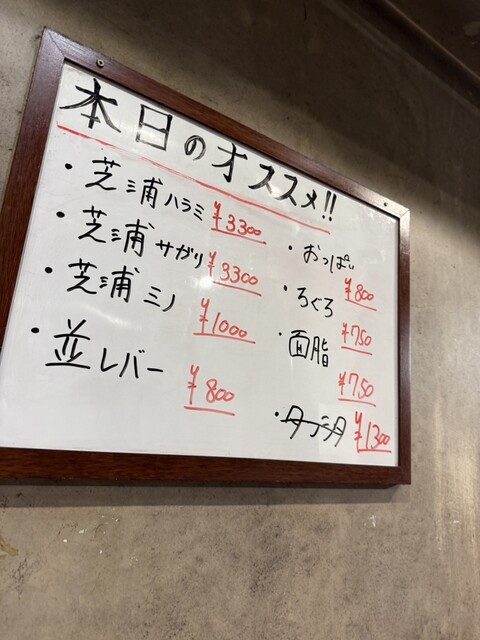 本日のオススメ!!
・芝浦ハラミ ¥3300
・芝浦サガリ ¥3300
・芝浦ミノ ¥1000
・並レバー ¥800
・おっぱい ¥800
・ろくろ ¥750
・面脂 ¥750
・ ¥1300